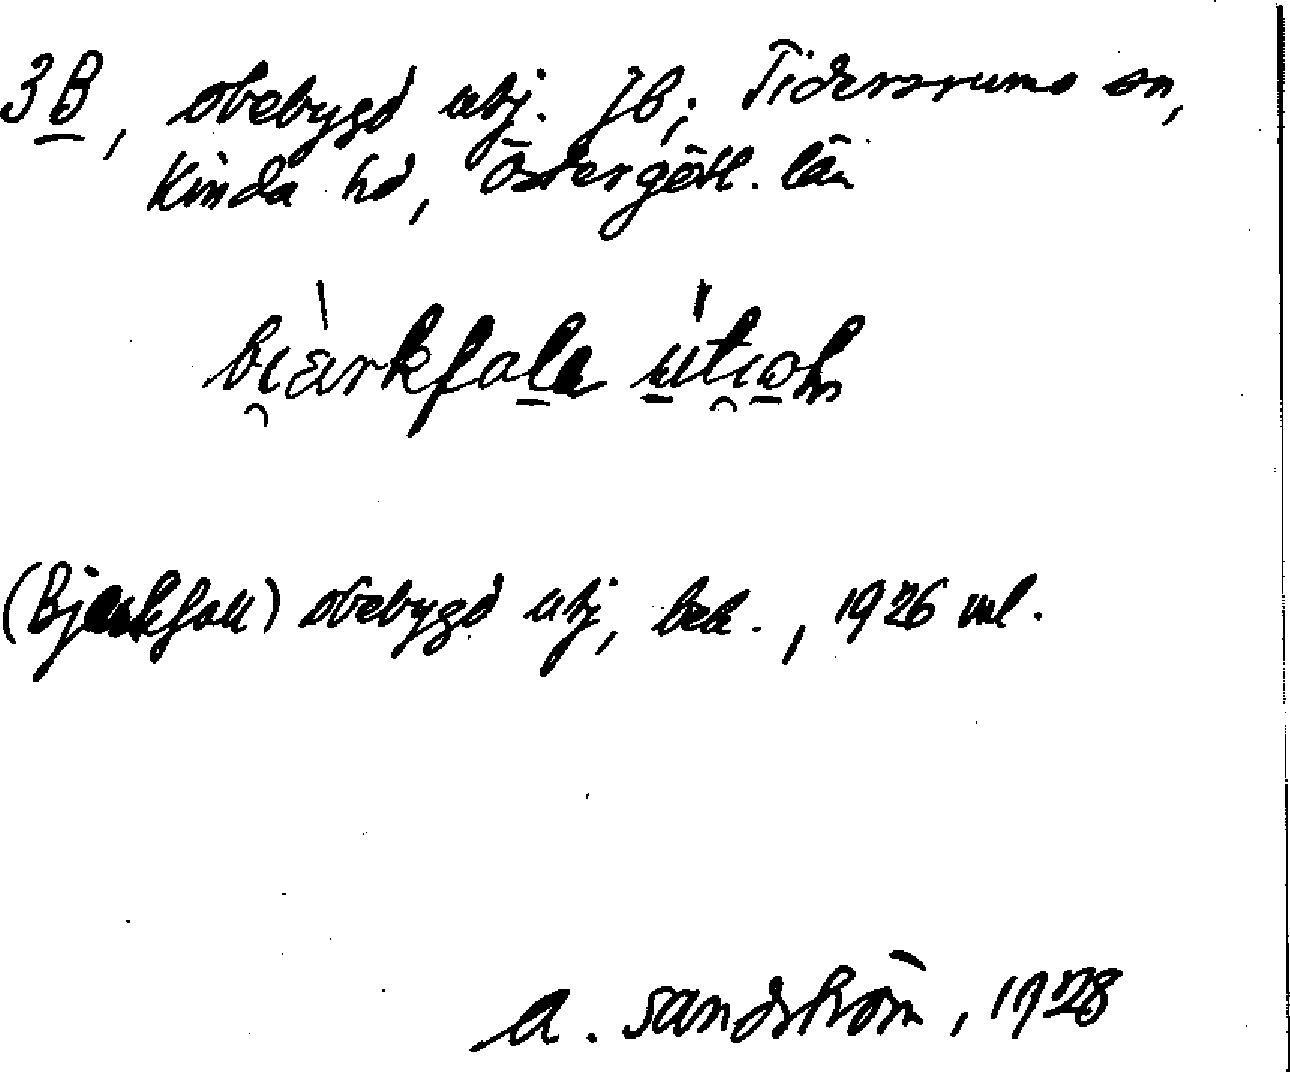 3 B, obebygd utj. Jb; Tidersrums sn,
Kinda hd, Östergötl. län
bi̯ärkfala uti̯oh
(Bjerkfall) obebygd utj, bel., 1926 vl.
A. Sandström, 1928